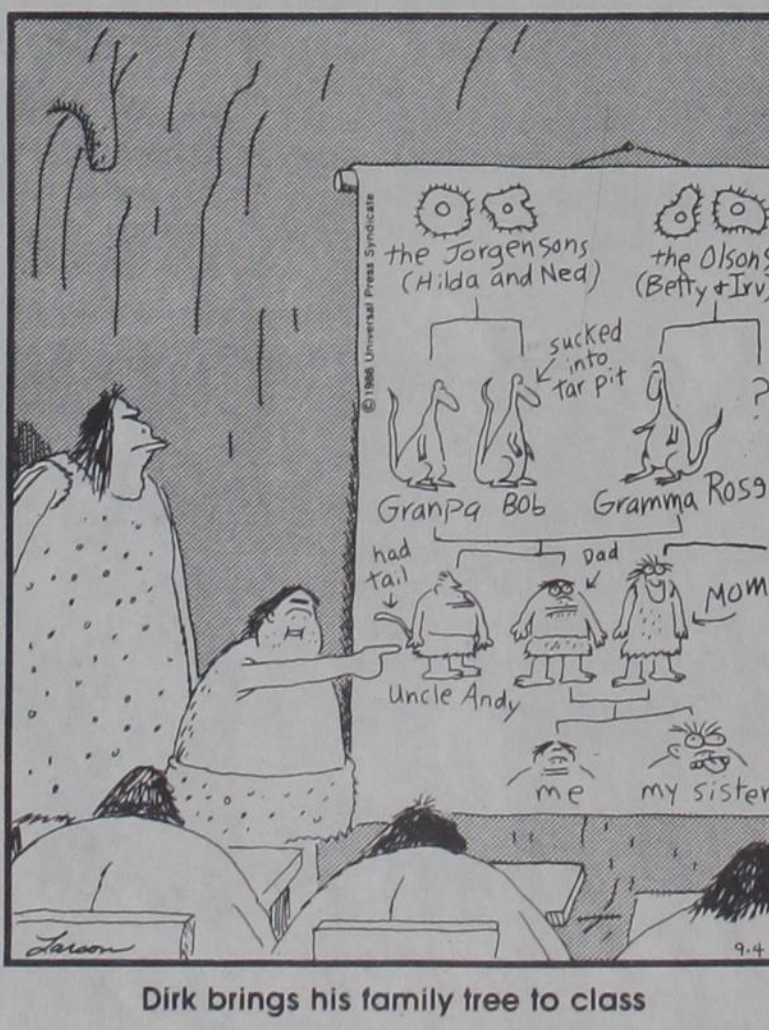 © 1988 Universal Press Syndicate
the Jorgensons
(Hilda and Ned)
the Olsons
(Betty + Irv)
sucked
into
tar pit
?
Granpa Bob
Gramma Rose
had
tail
Dad
Mom
Uncle Andy
me
my sister
Larson
9-4
Dirk brings his family tree to class